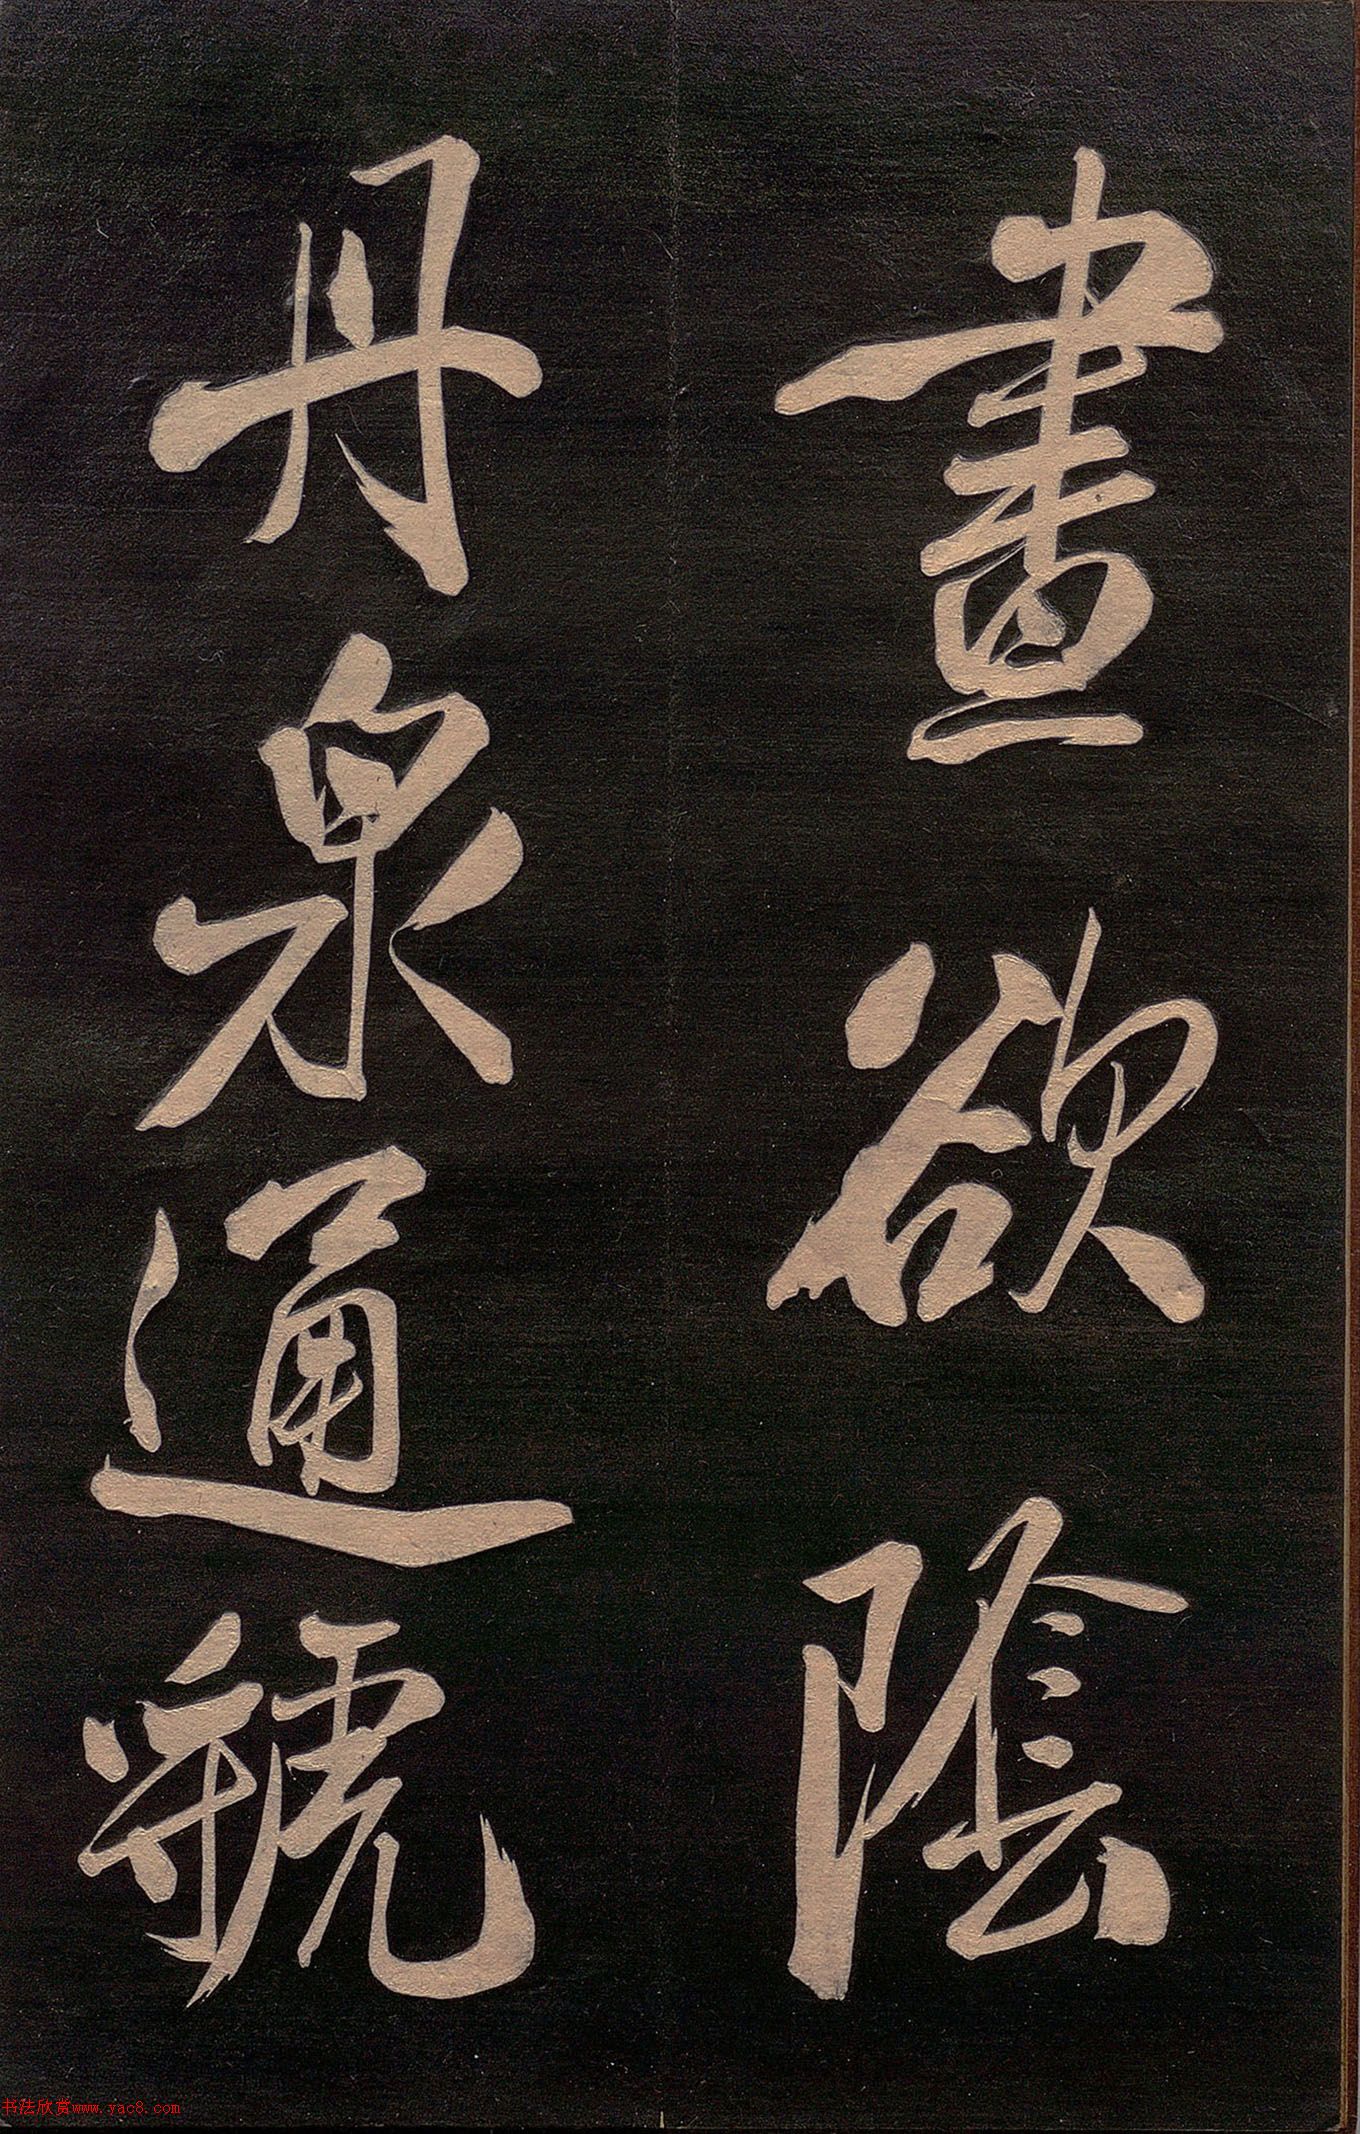 晝欲陰
丹泉通虢
书法欣赏www.yac8.com